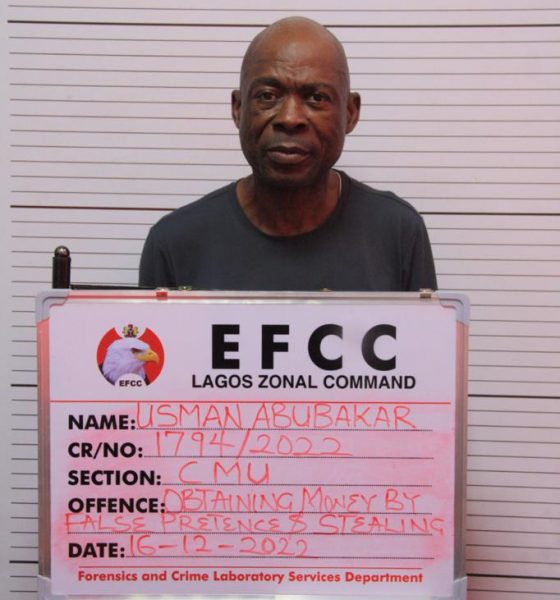 EFCC
EFCC
LAGOS ZONAL COMMAND
NAME: USMAN ABUBAKAR
CR/NO: 1794/2022
SECTION: CMU
OFFENCE: OBTAINING MONEY BY
FALSE PRETENCE & STEALING
DATE: 16-12-2022
Forensics and Crime Laboratory Services Department